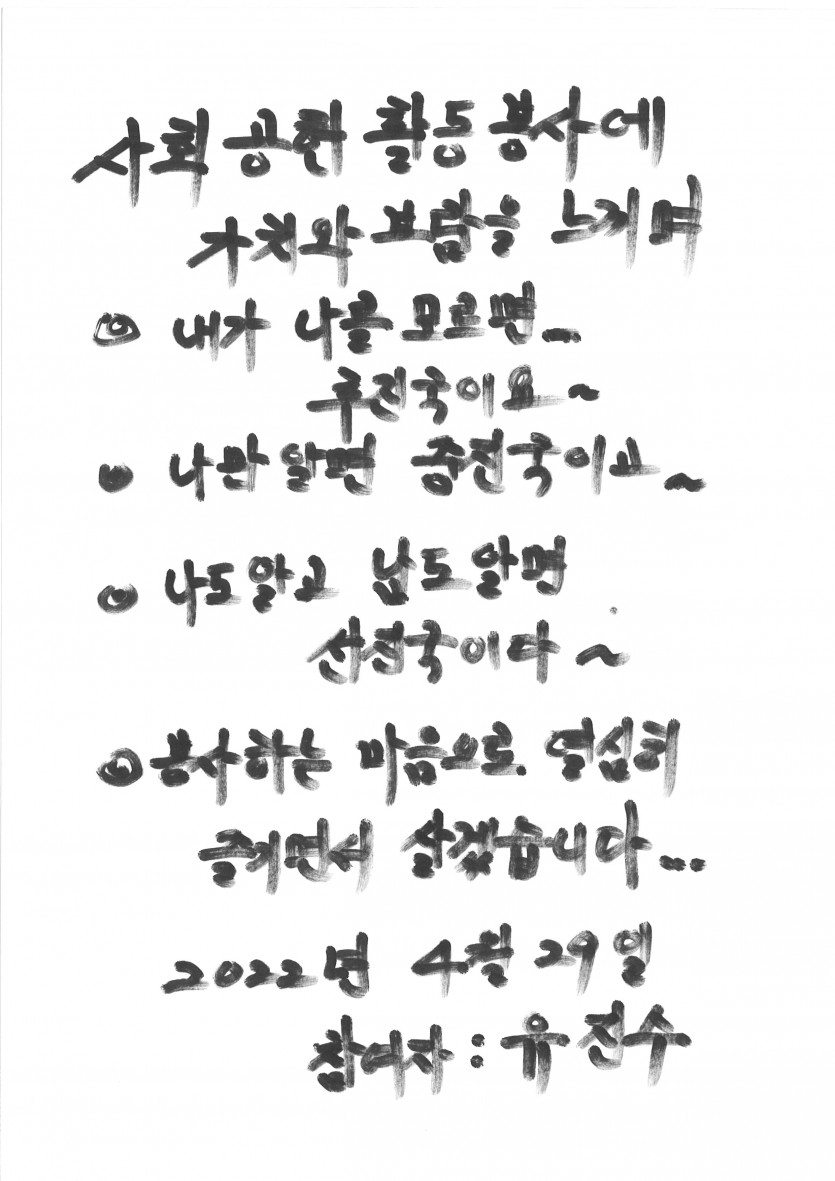 사회 공헌 활동 봉사에
가치와 보람을 느끼며
◎ 내가 나를 모르면...
후진국이요~
● 나만 알면 중진국이고~
◎ 나도 알고 남도 알면
선진국이다~
◎ 봉사하는 마음으로. 열심히
즐기면서 살겠습니다...
2022년 4.월 29일
참여자 : 유진수